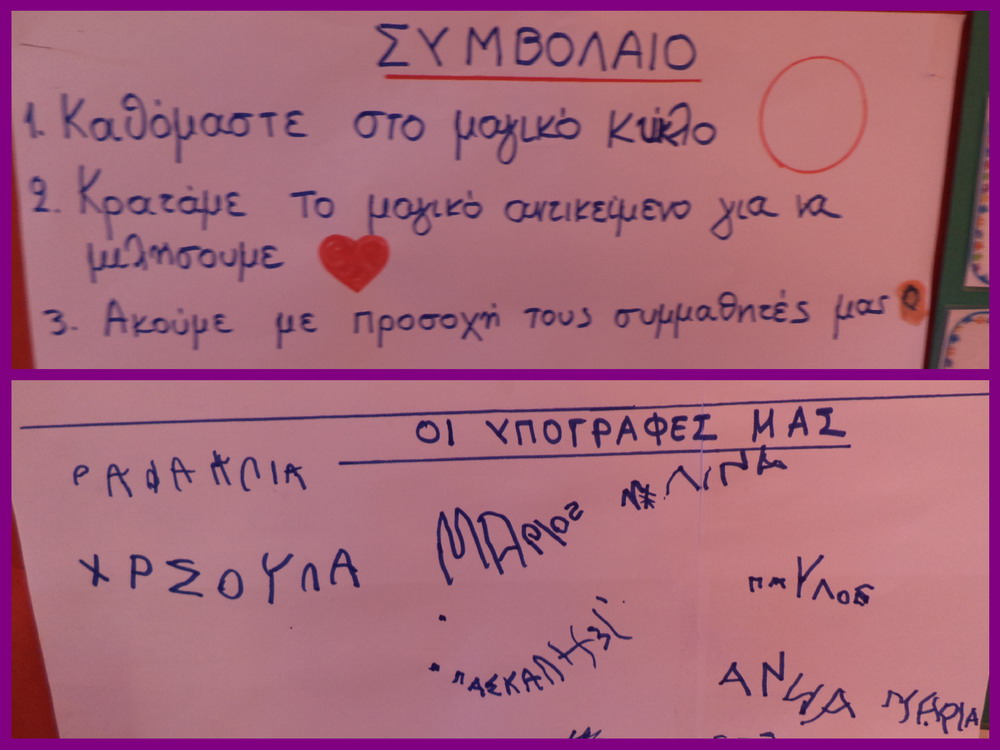 ΣΥΜΒΟΛΑΙΟ
1. Καθόμαστε στο μαγικό κύκλο
2. Κρατάμε το μαγικό αντικείμενο για να
μιλήσουμε
3. Ακούμε με προσοχή τους συμμαθητές μας
ΟΙ ΥΠΟΓΡΑΦΕΣ ΜΑΣ
ΜΑΡΙΟΣ
ΧΡΣΟΥΛΑ
ΠΑΥΛΟΣ
ΑΝΝΑ ΜΑΡΙΑ